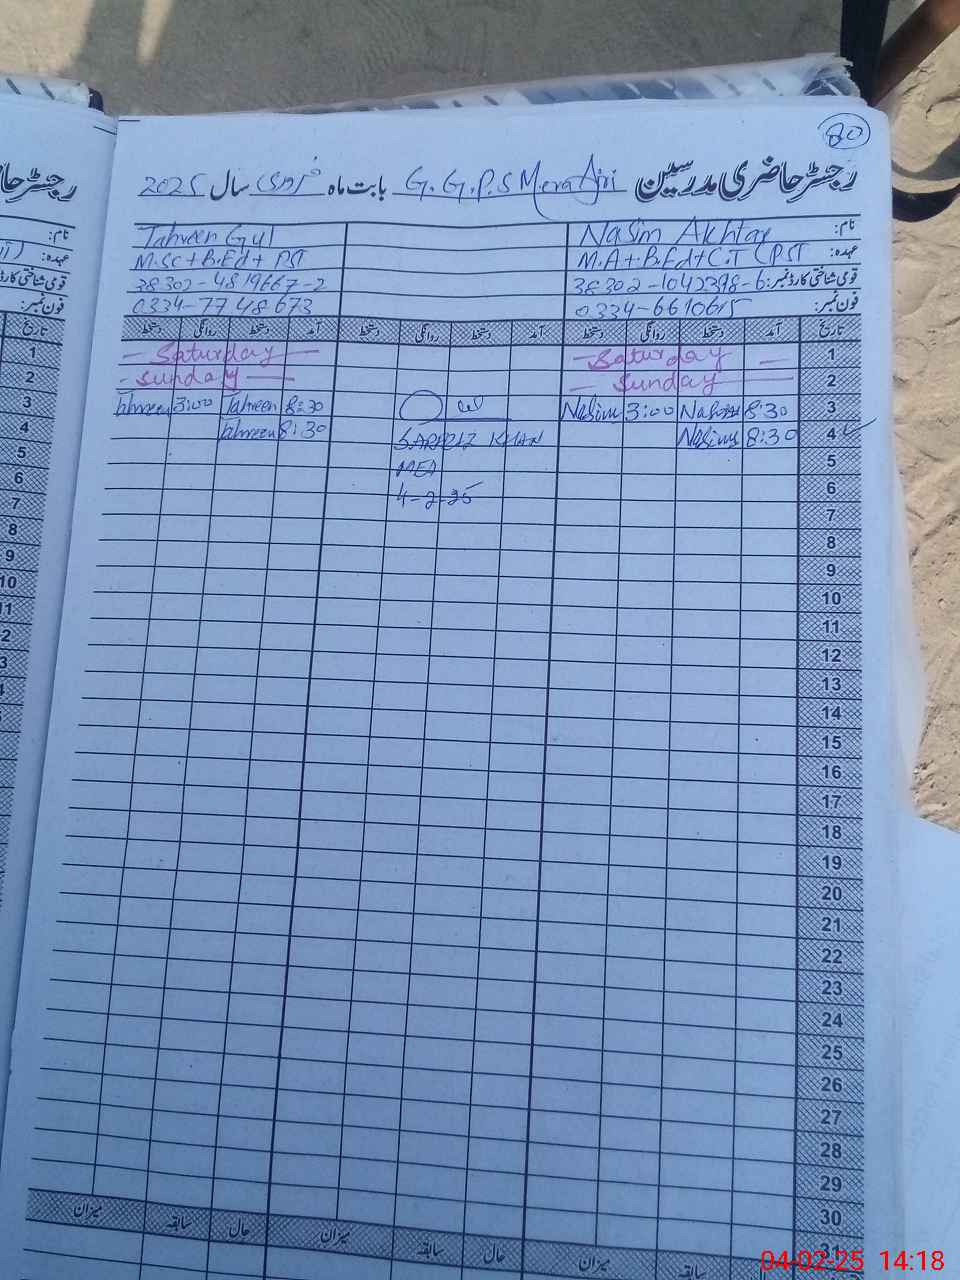 80
رجسٹر حاضری مدرسین G.G.P.S Mera بابت ماہ فروری سال 2025
نام: Nasim Akhtar Tahreen Gul
عہدہ: M.A+B.Ed+C.T (PST M.Sc+B.Ed+ PST
قومی شناختی کارڈ نمبر: 38302-1042398-6 38302-4819667-2
فون نمبر: 0334-6610615 0334-7748673
تاریخ آمد دستخط روانگی دستخط آمد دستخط روانگی دستخط آمد دستخط روانگی دستخط
1 Saturday Saturday
2 Sunday Sunday
3 8:30 Nasim 3:00 Nasim 8:30 Tahreen 3:00 Tahreen
4 8:30 Nasim KHAN 8:30 Tahreen
5 MEA
6 4-2-25
7
8
9
10
11
12
13
14
15
16
17
18
19
20
21
22
23
24
25
26
27
28
29
30
31
میزان سابقہ حال میزان سابقہ حال میزان سابقہ
رجسٹر حا
نام:
عہدہ:
قومی شناختی کارڈ
فون نمبر:
تاریخ
1
2
3
4
5
6
7
8
9
10
11
04-02-25 14:18